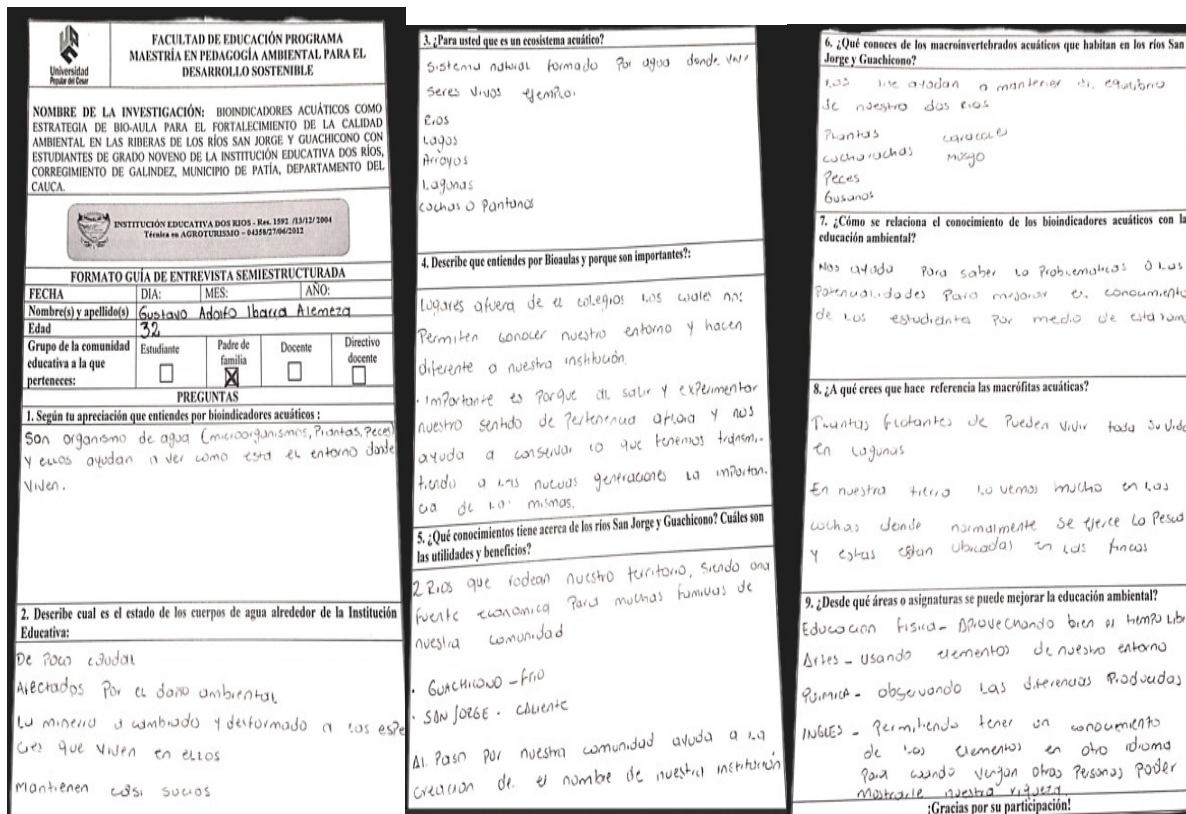 Universidad
Popular del Cesar
FACULTAD DE EDUCACIÓN PROGRAMA
MAESTRÍA EN PEDAGOGÍA AMBIENTAL PARA EL
DESARROLLO SOSTENIBLE
NOMBRE DE LA INVESTIGACIÓN: BIOINDICADORES ACUÁTICOS COMO
ESTRATEGIA DE BIO-AULA PARA EL FORTALECIMIENTO DE LA CALIDAD
AMBIENTAL EN LAS RIBERAS DE LOS RÍOS SAN JORGE Y GUACHICONO CON
ESTUDIANTES DE GRADO NOVENO DE LA INSTITUCIÓN EDUCATIVA DOS RÍOS,
CORREGIMIENTO DE GALINDEZ, MUNICIPIO DE PATÍA, DEPARTAMENTO DEL
CAUCA.
INSTITUCIÓN EDUCATIVA DOS RIOS - Res. 1592 /13/12/2004
Técnica en AGROTURISMO - 04358/27/06/2012
FORMATO GUÍA DE ENTREVISTA SEMIESTRUCTURADA
FECHA DIA: MES: AÑO:
Nombre(s) y apellido(s) Gustavo Adolfo Ibarra Alemeza
Edad 32
Grupo de la comunidad educativa a la que perteneces: Estudiante Padre de familia X Docente Directivo docente
PREGUNTAS
1. Según tu apreciación que entiendes por bioindicadores acuáticos :
Son organismo de agua (microorganismos, Plantas, Peces)
Y ellos ayudan a ver como esta el entorno donde
Viven.
2. Describe cual es el estado de los cuerpos de agua alrededor de la Institución
Educativa:
De Poco caudal
Afectados Por el daño ambiental
La mineria a cambiado y desformado a las espe
cies que viven en ellos
Mantienen casi sucios
3. ¿Para usted que es un ecosistema acuático?
Sistema natural formado Por agua donde
Seres Vivos ejemplo.
Rios
Lagos
Arroyos
Lagunas
Cochas o Pantanos
4. Describe que entiendes por Bioaulas y porque son importantes?:
Lugares afuera de el colegios los cuales nos
Permiten conocer nuestro entorno y hacen
diferente a nuestra institución.
· Importante es Porque al salir y experimentar
nuestro sentido de Pertenencia aflora y nos
ayuda a conservar lo que tenemos transmi-
tiendo a las nuevas generaciones la importan.
cia de la mismas.
5. ¿Qué conocimientos tiene acerca de los ríos San Jorge y Guachicono? Cuáles son
las utilidades y beneficios?
2 Rios que rodean nuestro territorio, siendo una
fuente economica Para muchas familias de
nuestra comunidad
· GUACHICONO - FRIO
· SAN JORGE - CALIENTE
Al Paso Por nuestra comunidad ayuda a la
creacion de el nombre de nuestra institución
6. ¿Qué conoces de los macroinvertebrados acuáticos que habitan en los ríos San
Jorge y Guachicono?
Los ayudan a mantener el equilibrio
de nuestro dos rios
Plantas caracoles
cucharachas Musgo
Peces
Gusanos
7. ¿Cómo se relaciona el conocimiento de los bioindicadores acuáticos con la
educación ambiental?
Nos ayuda Para saber la Problematicas o las
Potencialidades Para mejorar el conocimiento
de los estudiantes Por medio de esta
8. ¿A qué crees que hace referencia las macrófitas acuáticas?
flotantes Pueden Vivir toda su vida
en Lagunas
En nuestra tierra lo vemos mucho en las
cochas donde normalmente se ejerce la Pesca
Y estas estan ubicadas en las fincas
9. ¿Desde qué áreas o asignaturas se puede mejorar la educación ambiental?
Educacion fisica - Aprovechando bien el tiempo
Artes - usando elementos de nuestro entorno
Quimica - observando las diferencias Producidas
INGLES - Permitiendo tener un conocimiento
de los elementos en otro idioma
Para cuando vengan otras Personas Poder
Mostrarle nuestra riqueza.
¡Gracias por su participación!